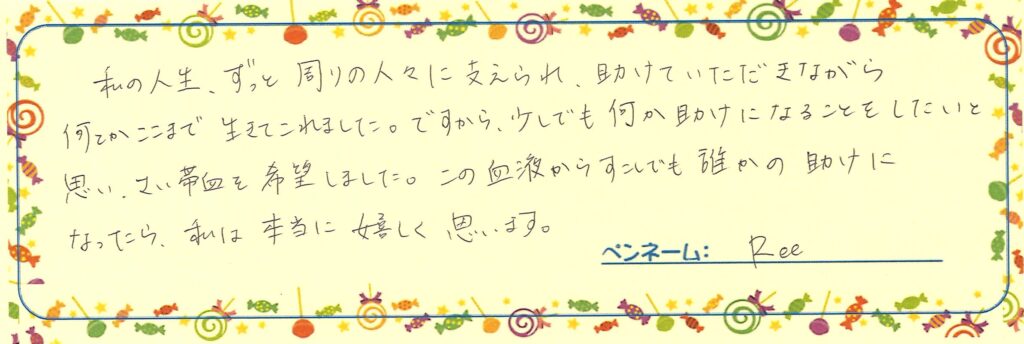 私の人生、ずっと周りの人々に支えられ、助けていただきながら
何とかここまで生きてこれました。ですから、少しでも何か助けになることをしたいと
思い、さい帯血を希望しました。この血液からすこしでも誰かの助けに
なったら、私は本当に嬉しく思います。
ペンネーム： Ree